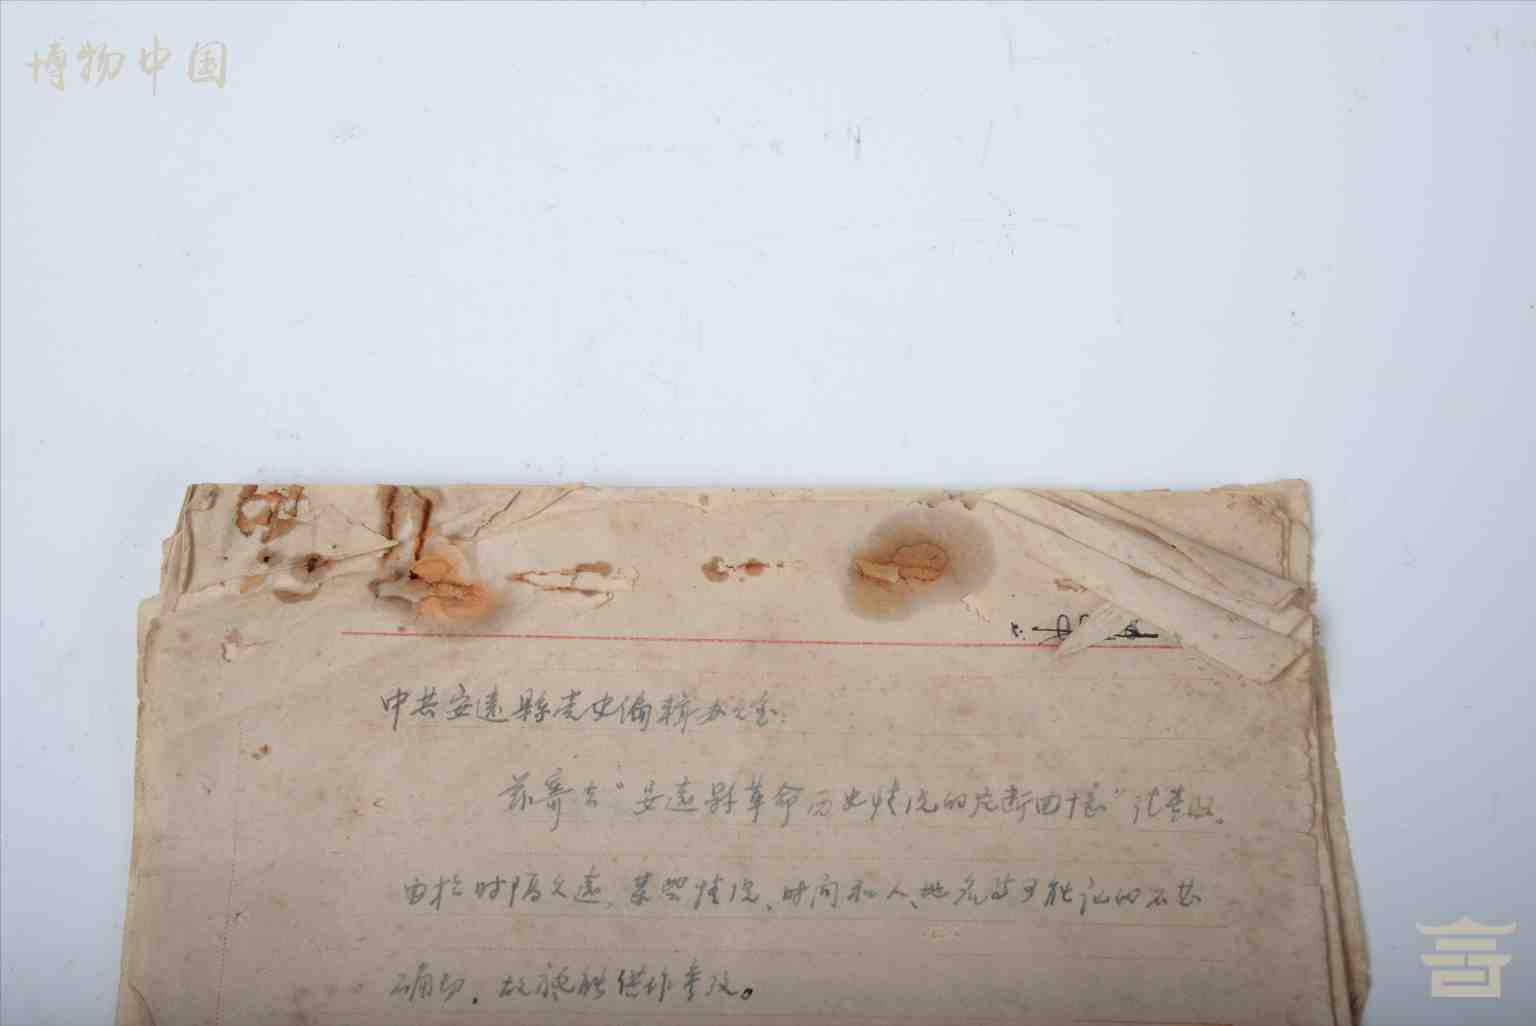 博物中国
中共安远縣党史编辑办公室:
兹寄去“安远县革命历史情况的片断回忆”请查收。
由於时隔久远,某些情况、时间和人、地名皆可能记的不甚
确切,故祗能供作参考。